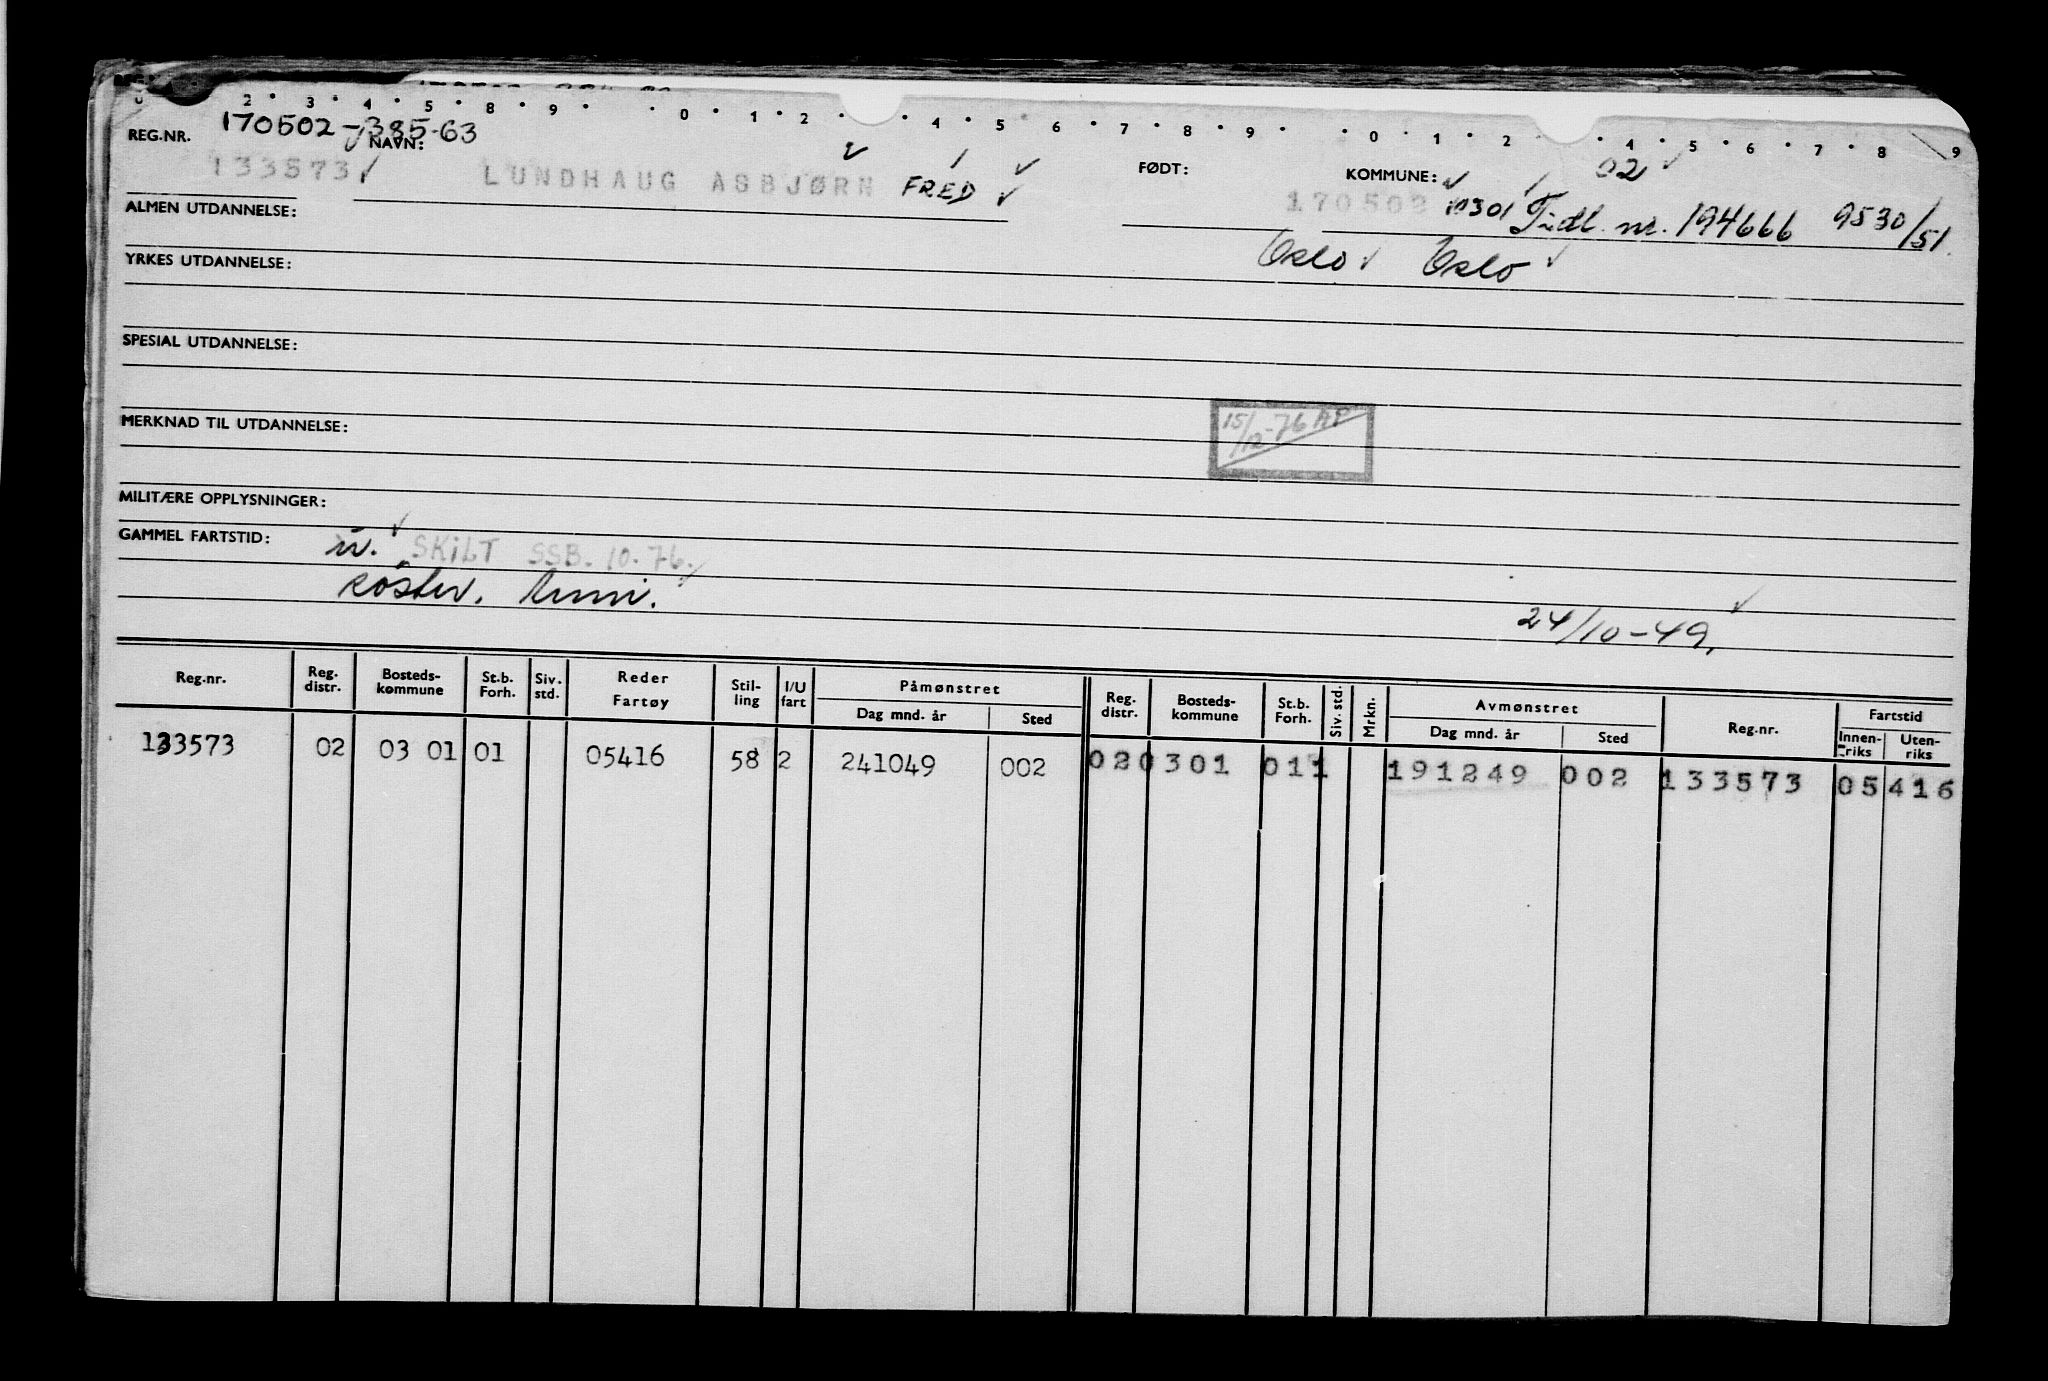 2 • 3 • 4 • 5 • 8 • 9 • 0 • 1 • 2 • • 4 • 5 • 6 • 7 • 8 • 9 • • 0 • 1 • 2 • 4 • 5 • 6 • 7 • 8 • 9
REG.NR. 170502-385-63
NAVN: FØDT: KOMMUNE: 02
133573 LUNDHAUG ASBJØRN FRED 170502 0301 Tidl. nr. 194666 9530/51.
ALMEN UTDANNELSE:
Oslo Oslo
YRKES UTDANNELSE:
SPESIAL UTDANNELSE:
MERKNAD TIL UTDANNELSE:
15/12-76 AP
MILITÆRE OPPLYSNINGER:
GAMMEL FARTSTID: SKILT SSB. 10-76.
24/10-49.
Reg.nr. Reg. distr. Bosteds-kommune St.b. Forh. Siv. std. Reder Fartøy Stil-ling I/U fart Påmønstret Dag mnd. år Sted Reg. distr. Bosteds-kommune St.b. Forh. Siv. std. Mrkn. Avmønstret Dag mnd. år Sted Reg.nr. Fartstid Innen-riks Uten-riks
133573 02 03 01 01 05416 58 2 241049 002 020301 011 191249 002 133573 05416